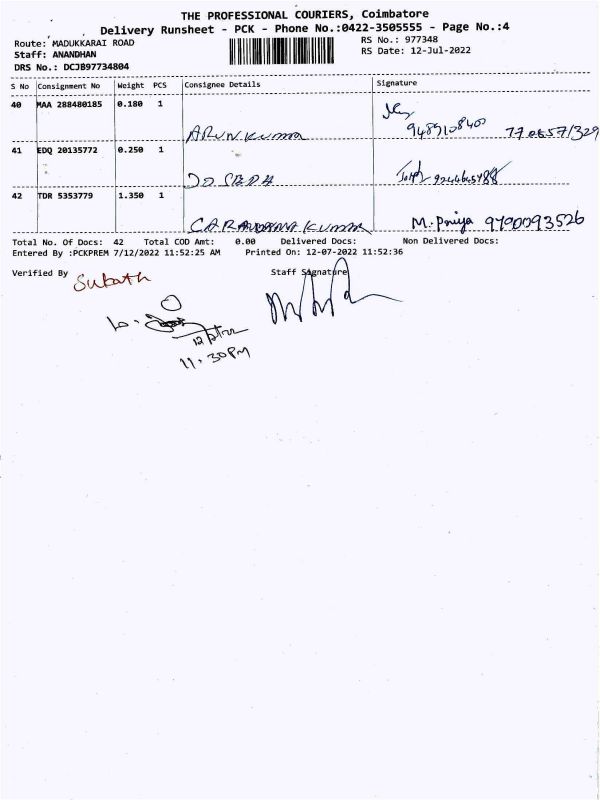 THE PROFESSIONAL COURIERS, Coimbatore
Delivery Runsheet - PCK - Phone No.:0422-3505555 - Page No.:4
Route: MADUKKARAI ROAD
RS No.: 977348
Staff: ANANDHAN
RS Date: 12-Jul-2022
DRS No.: DCJB97734804
S No Consignment No Weight PCS Consignee Details Signature
40 MAA 288480185 0.180 1
ARUN KUMAR
41 EDQ 20135772 0.250 1
JOSEPH
42 TDR 5353779 1.350 1
M. Priya 9790093526
Total No. Of Docs: 42 Total COD Amt: 0.00 Delivered Docs: Non Delivered Docs:
Entered By :PCKPREM 7/12/2022 11:52:25 AM Printed On: 12-07-2022 11:52:36
Verified By Subath Staff Signature
11.30PM